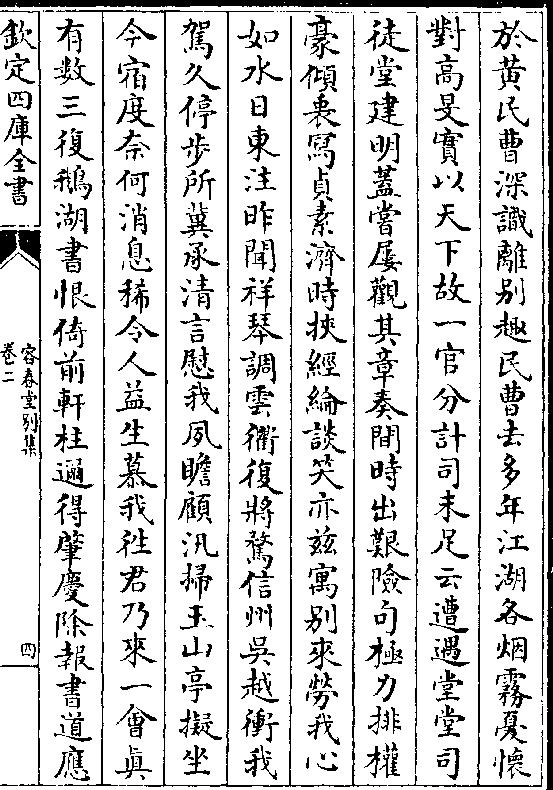 於黄民曹深識離别趣民曹去多年江湖各烟霧憂懷
對高旻實以天下故一官分計司未足云遭遇堂堂司
徒堂建明蓋嘗屢觀其章奏間時出艱險句極力排權
豪傾裹寫貞素濟時挾經綸談笑亦兹寓别來勞我心
如水日東注昨聞祥琴調雲衢復將騖信州吳越衝我
駕久停歩所冀承清言慰我夙瞻顧汎掃玉山亭擬坐
今宿度奈何消息稀令人益生慕我徃君乃來一會真
有數三復鵝湖書恨倚前軒柱邇得肇慶除報書道應
欽定四庫全書
容春堂別集
卷二
四